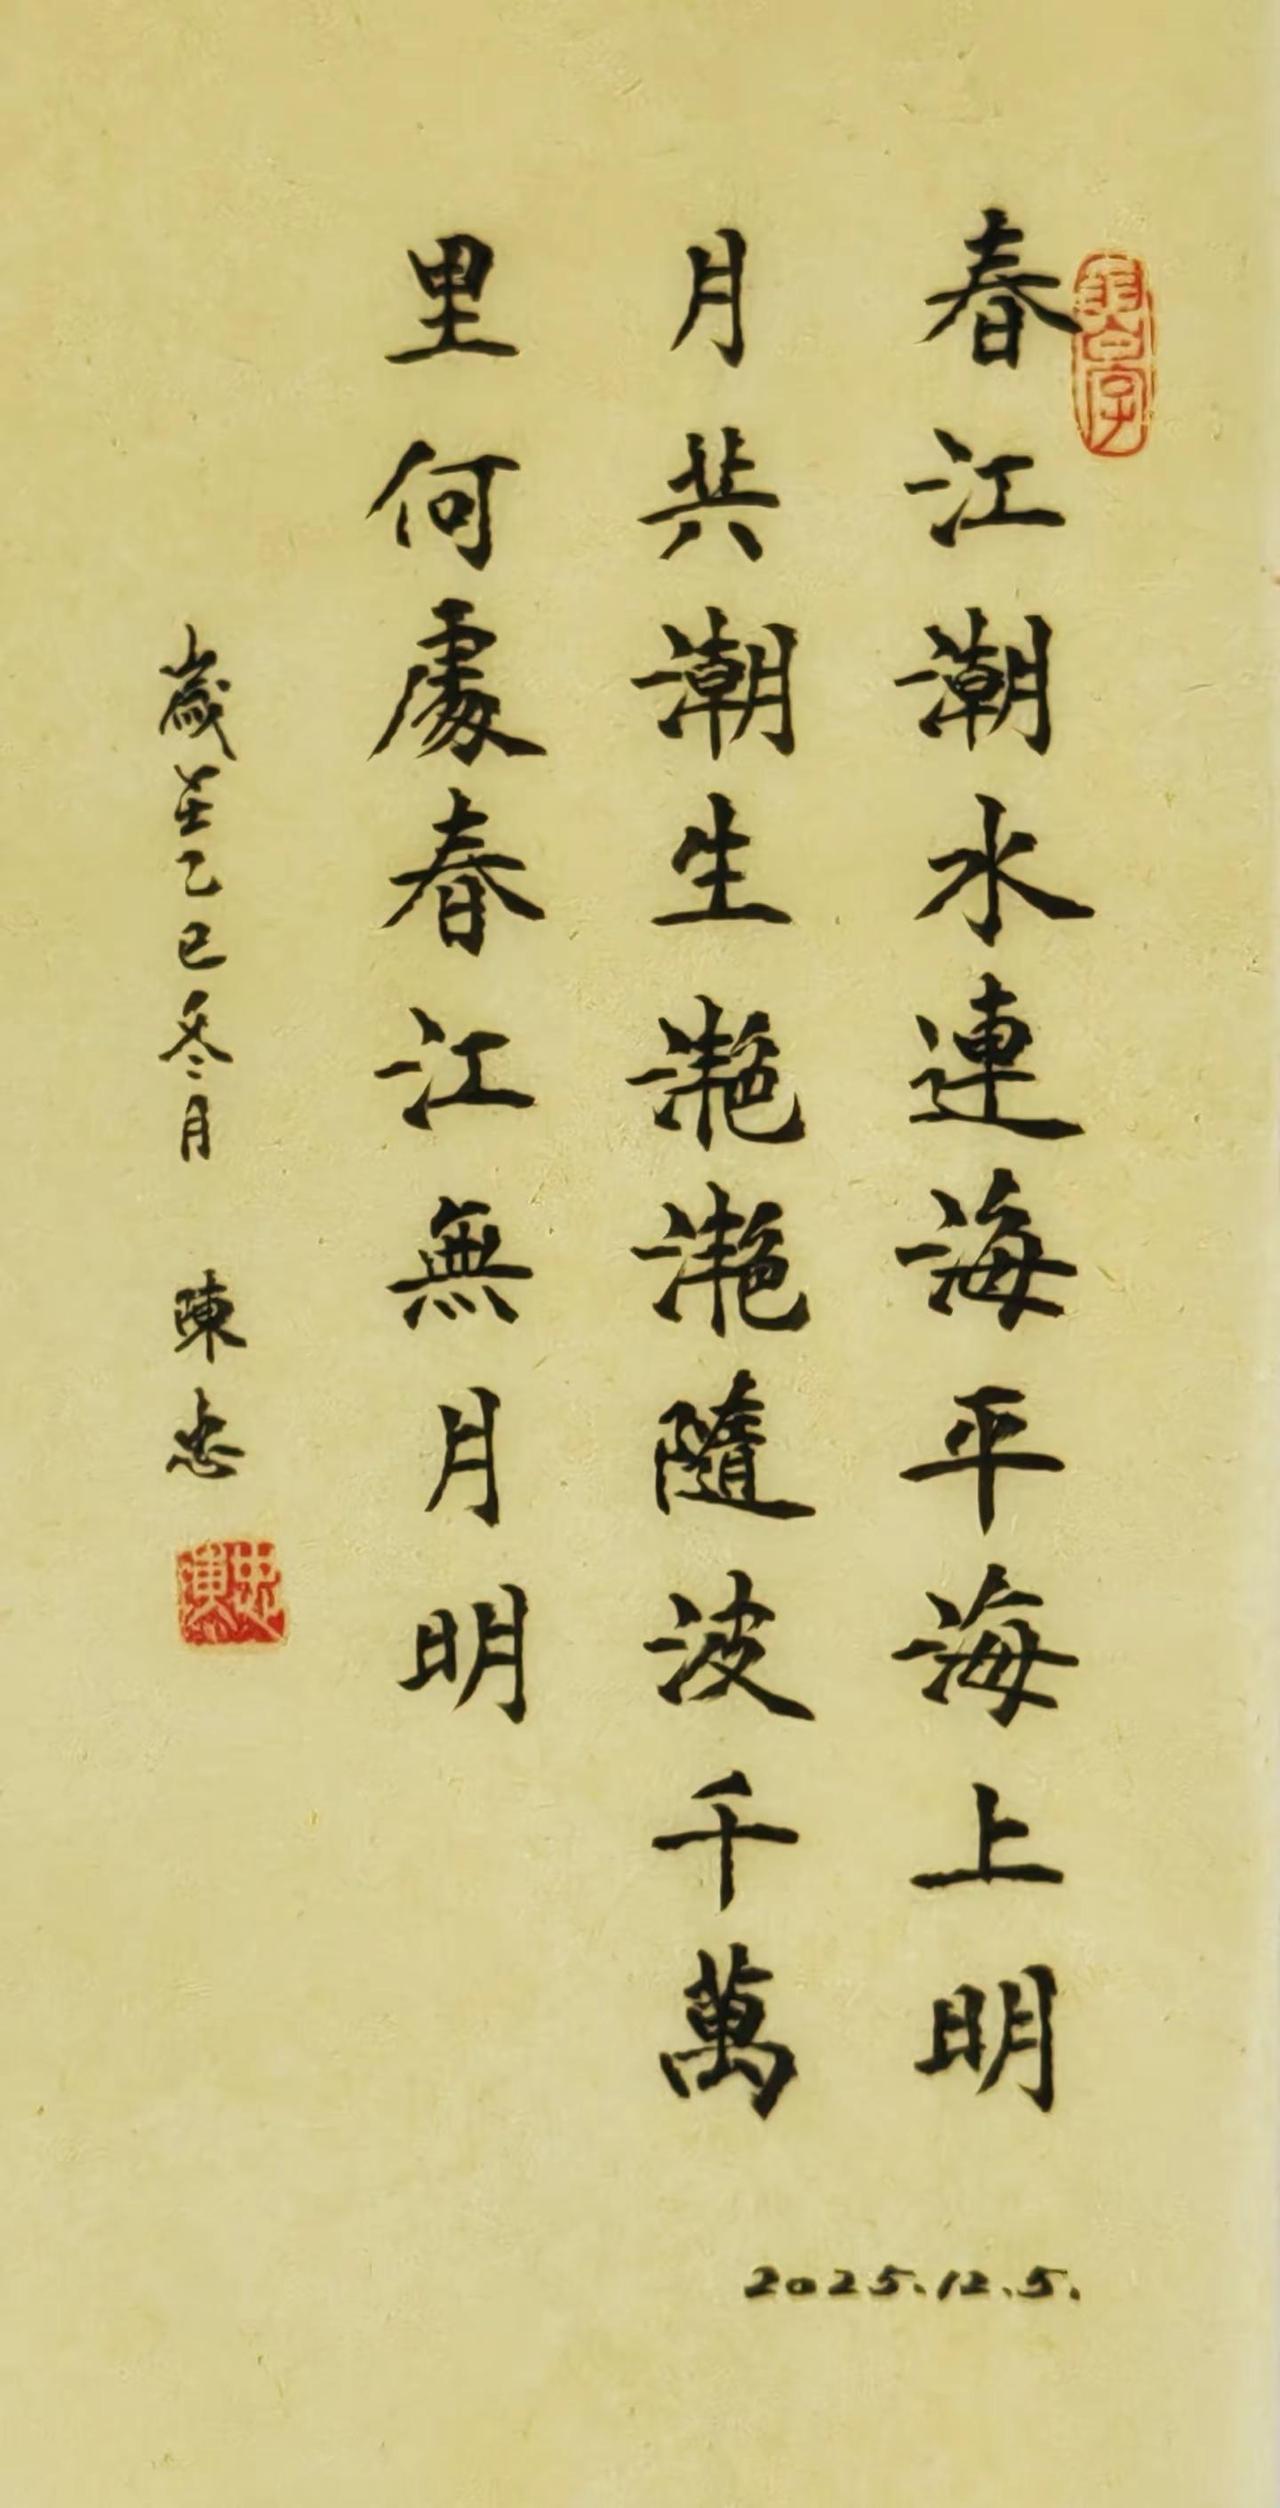 春江潮水連海平海上明
月共潮生灧灧隨波千萬
里何處春江無月明
歲在乙巳冬月 陳忠
2025.12.5.